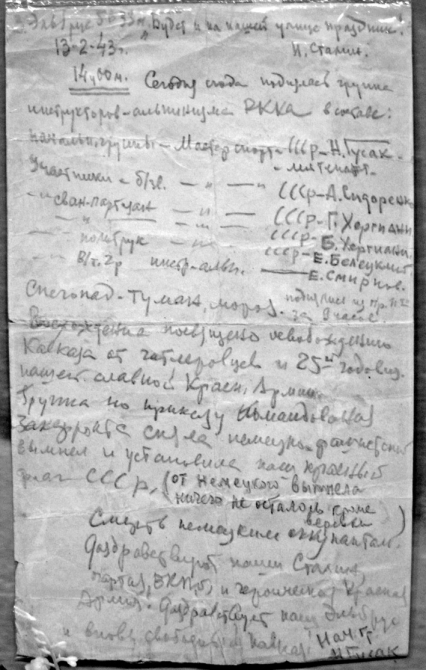 Эльбрус 5633 м. "Будет и на нашей улице праздник!"
13-2-43 г. И. Сталин.
14ч.00м. Сегодня сюда поднялась группа
инструкторов-альпинизма РККА в составе:
начальн. группы - Мастер спорта СССР - Н. Гусак.
- лейтенант.
Участники - б/зв. - " - " - СССР - А. Сидоренко
- СССР - Г. Хергиани
- " - СССР - Б. Хергиани.
политрук - " - СССР - Е. Белецкий
в/т. 2р - Е. Смирнов.
Снегопад - туман, мороз. поднялись из пр. 
за 8 часов
Восхождение посвящено освобождению
Кавказа от гитлеровцев и 25-й годовщ.
нашей славной Красн. Армии.
Группа по приказу командования
Закфронта сняла немецко-фашистский
вымпел и установила наш Красный
флаг СССР, (от немецкого вымпела
ничего не осталось кроме
веревки)
Смерть немецким оккупантам.
Даздравствует наш Сталин,
партия, ВКП(б) и героическая Красная
Армия. Даздравствует наш Эльбрус
и вновь свободный Кавказ! Нач. гр.
Н. Гусак